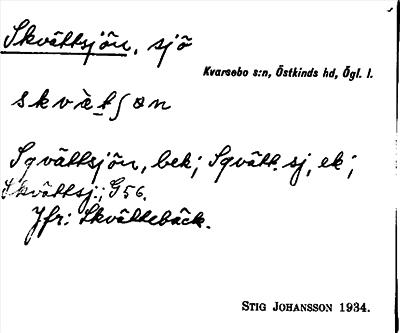 Skvättsjön, sjö
Kvarsebo s:n, Östkinds hd, Ögl. l.
skvä̀tʃøn
Sqvättsjön, bek; Sqvätt. sj, ek;
Skvättsj.; G56.
Jfr: Skvättebäck.
STIG JOHANSSON 1934.